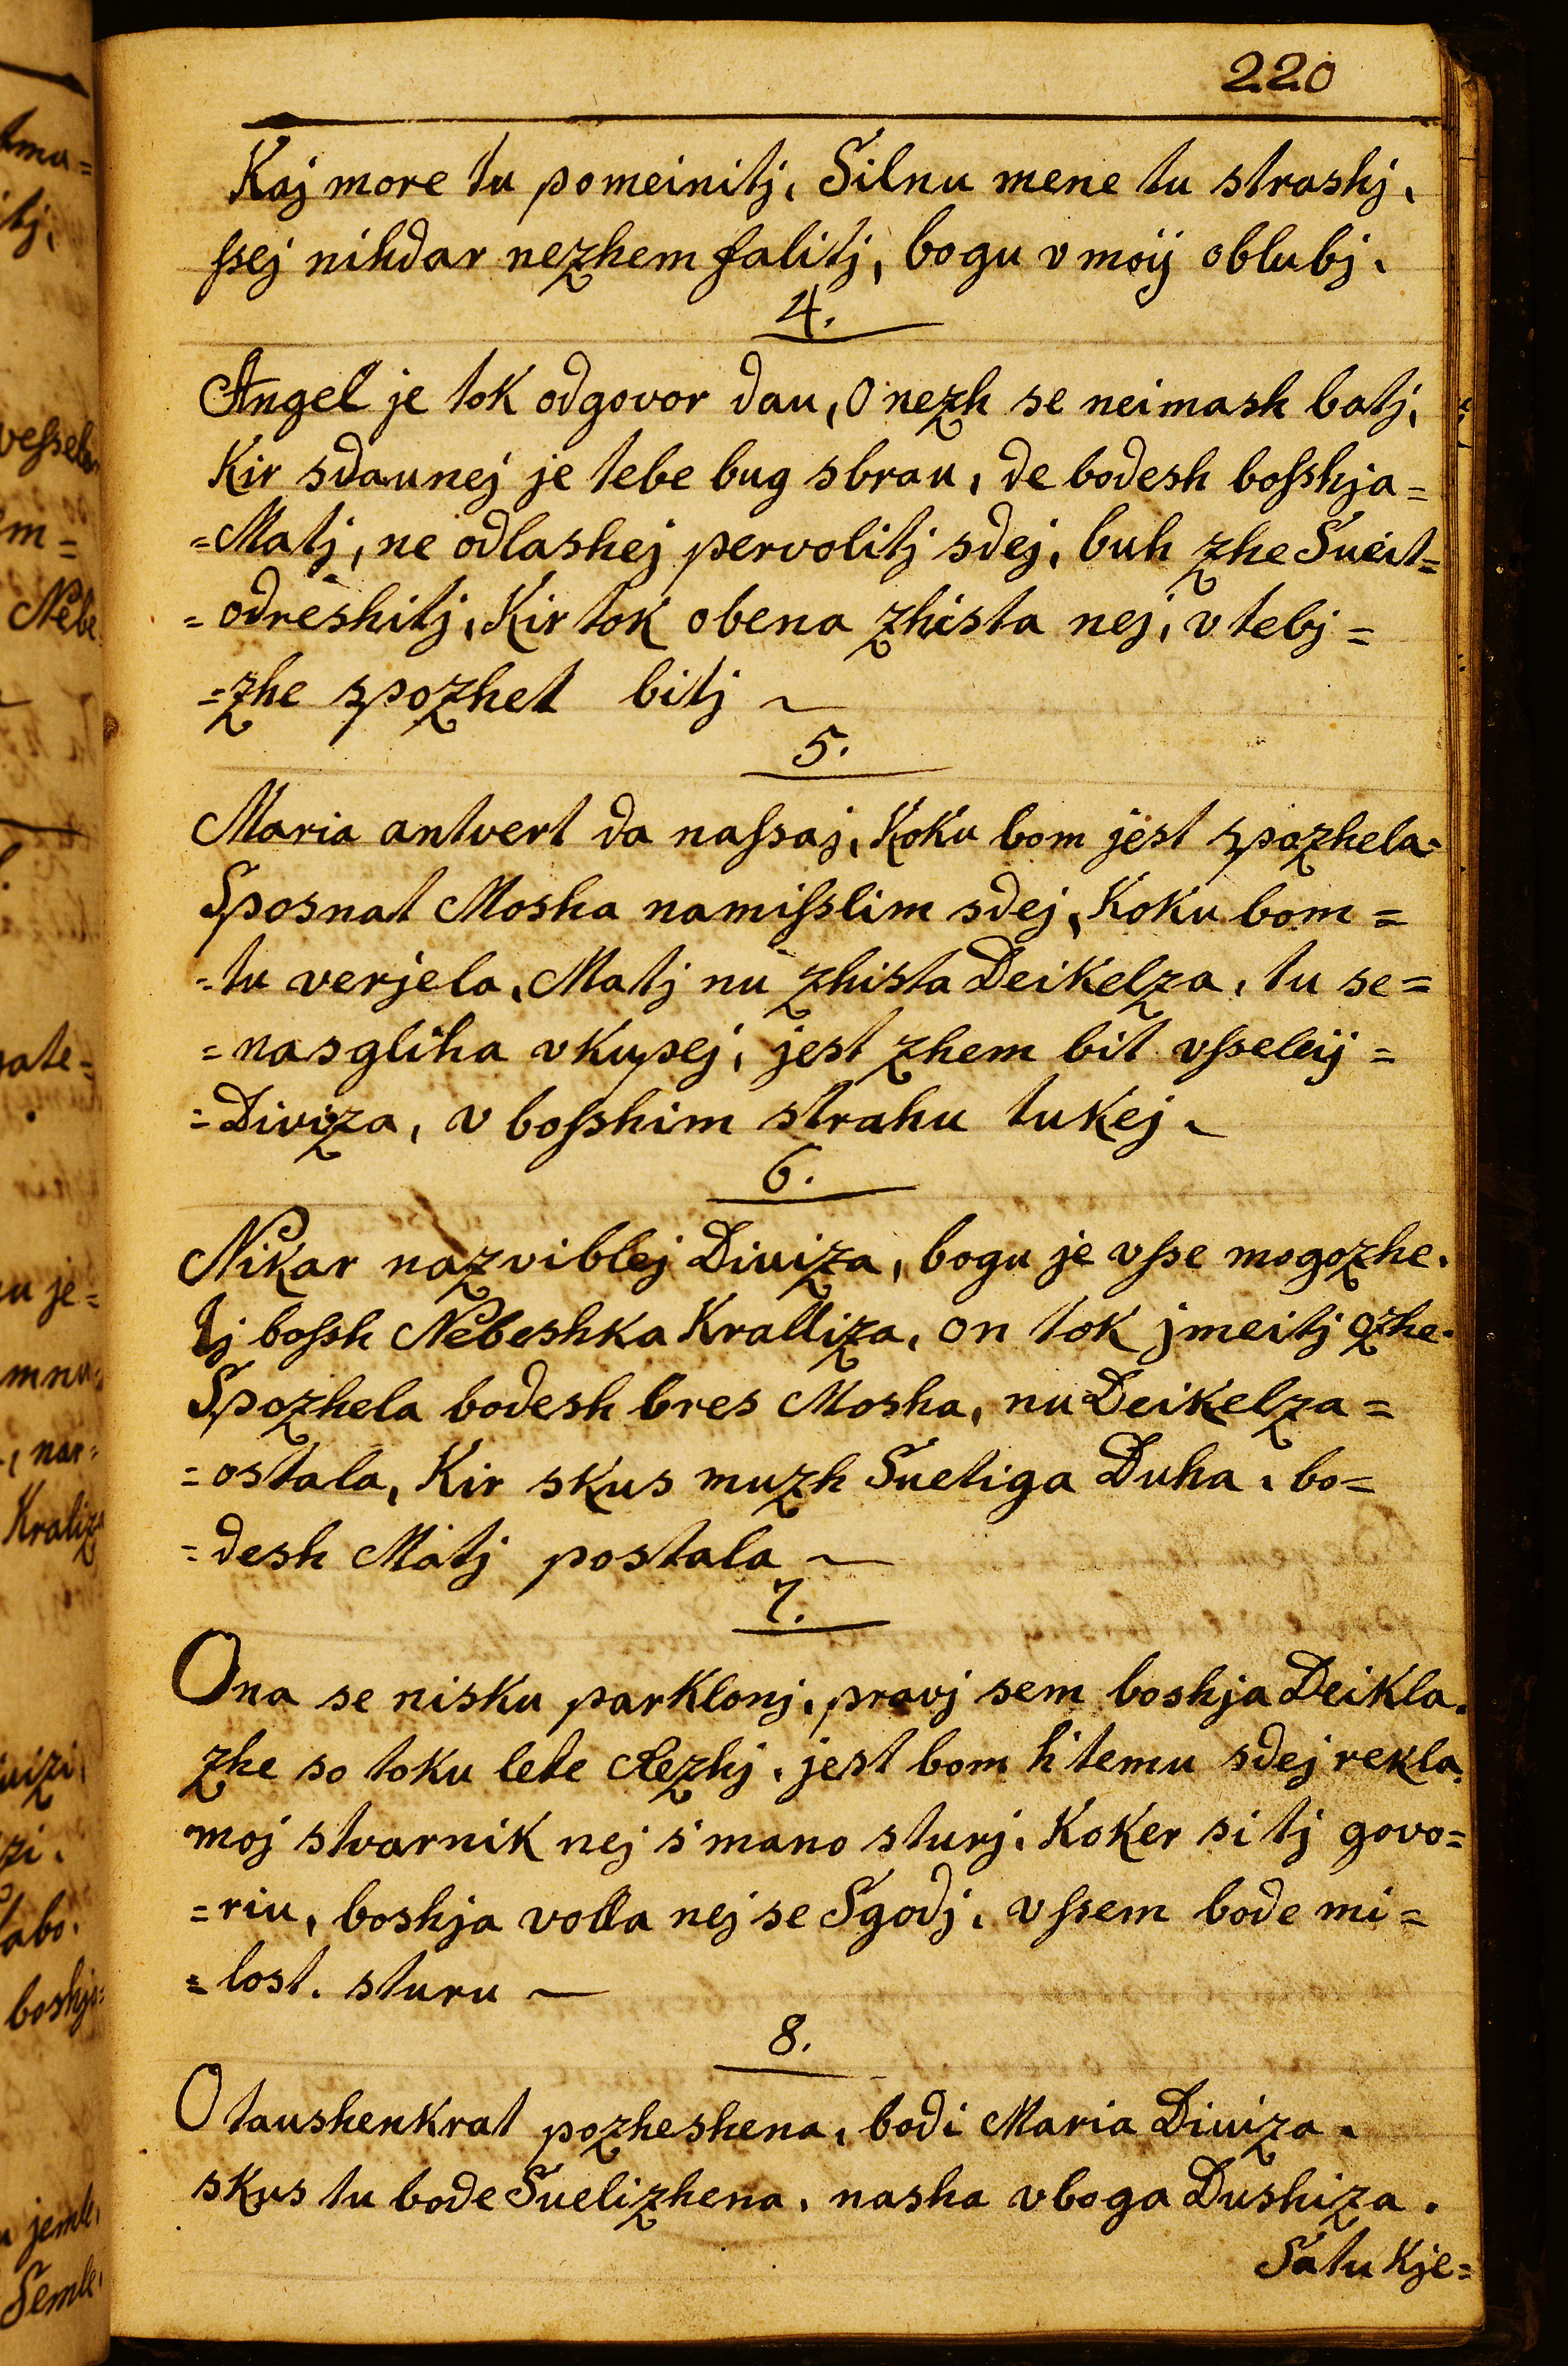 220
Kaj more tu pomeinitj, Silnu mene tu strashj,
ſsej nihdar nezhem falitj, bogu v moij oblubj.
4.
Angel je tok odgovor dau, O nezh se neimash batj,
Kir sdaunej je tebe bug sbrau, de bodesh boſshja=
=Matj, ne odlashej pervolitj sdej, buh zhe Sueit=
=odreshitj, Kir tok obena zhista nej, v tebj=
=zhe spozhet bitj ~
5.
Maria antvert da naſsaj, Koku bom jest spozhela.
Sposnat Mosha namiſslim sdej, Koku bom=
=tu verjela, Matj nu zhista Deikelza, tu se=
=nasgliha vkupej, jest zhem bit vſseleij=
=Diviza, v boſshim strahu tukej.
6.
Nikar nazviblej Diviza, bogu je vſse mogozhe.
tj boſsh Nebeshka Kralliza, on tok jmeitj ozhe.
Spozhela bodesh bres Mosha, nu Deikelza=
=ostala, Kir skus muzh Suetiga Duha, bo=
=desh Matj postala ~
7.
Ona se nisku parklonj, pravj sem boshja Deikla.
zhe so toku lete Rezhj, jest bom h' temu sdej rekla.
moj stvarnik nej s' mano sturj. Koker si tj govo=
=riu, boshja volla nej se Sgodj, vſsem bode mi=
=lost. sturu ~
8.
O taushenkrat pozheshena, bodi Maria Diviza.
skus tu bode Suelizhena, nasha vboga Dushiza.
Satu Kje=